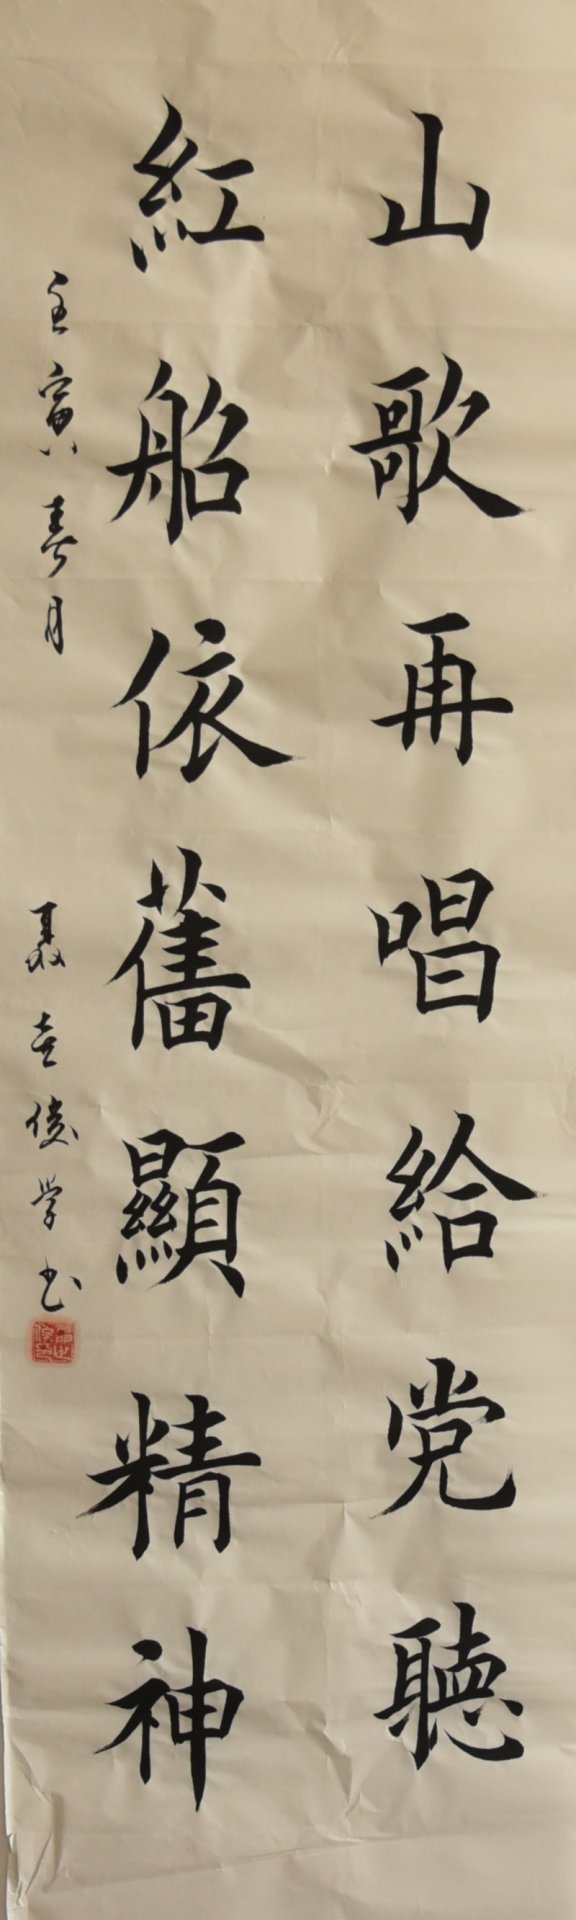 山歌再唱給党聽
紅船依舊顯精神
壬寅春月
聂志俊学书